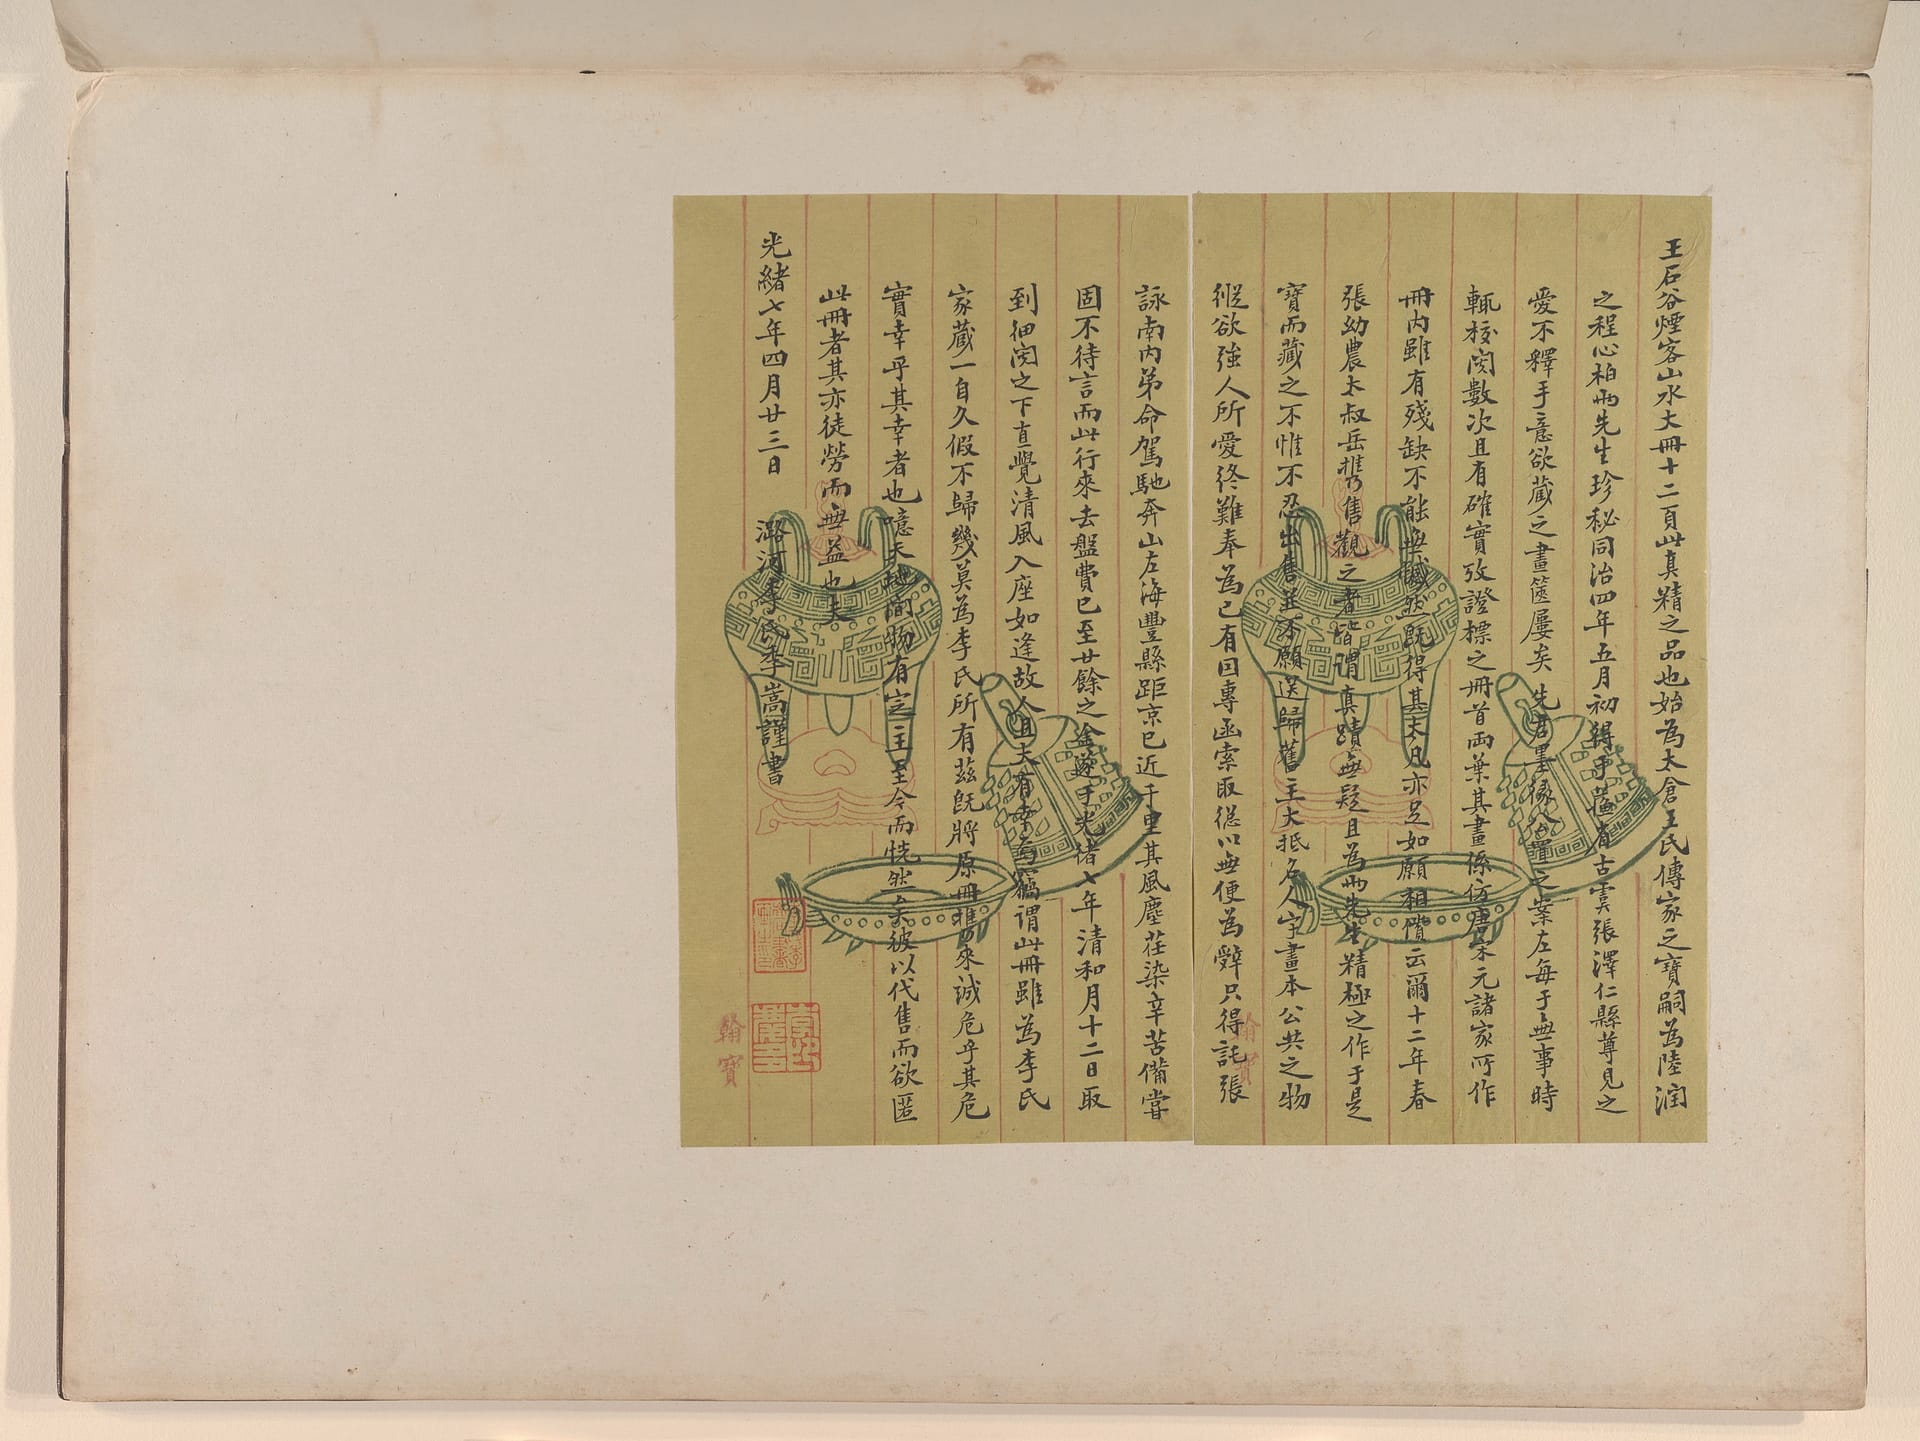 王石谷煙客山水大冊十二頁此真精之品也始為太倉王氏傳家之寶嗣為陸潤
之程心柏兩先生珍秘同治四年五月初得於舊肴古雲張澤仁縣尊見之
愛不釋手意欲藏之畫篋屢矣先君墨緣公置之案左每于無事時
輒校閱數次且有確實攷證標之冊首兩葉其畫係仿唐宋元諸家所作
冊內雖有殘缺不能無憾然既得其大凡亦足如願相償云爾十二年春
張幼農太叔岳攜售觀之者皆謂真蹟無疑且為兩先生精極之作于是
寶而藏之不惟不忍出售並不願送歸舊主大抵名人字畫本公共之物
縱欲強人所愛終難奉為己有因專函索取總以無便為辭只得託張
詠南內弟命駕馳奔山左海豐縣距京已近千里其風塵荏染辛苦備嘗
固不待言而此行來去盤費已至廿餘之金遂于光緒七年清和月十二日取
到細閱之下直覺清風入座如逢故人且夫有幸有竊謂此冊雖為李氏
家藏一自久假不歸幾莫為李氏所有茲既將原冊攜來誠危乎其危
實幸乎其幸者也噫天地間物有定主至今而恍然矣彼以代售而欲匿
此冊者其亦徒勞而無益也夫
光緒七年四月廿三日 潞河李氏季嵩謹書
翰寶
翰寶